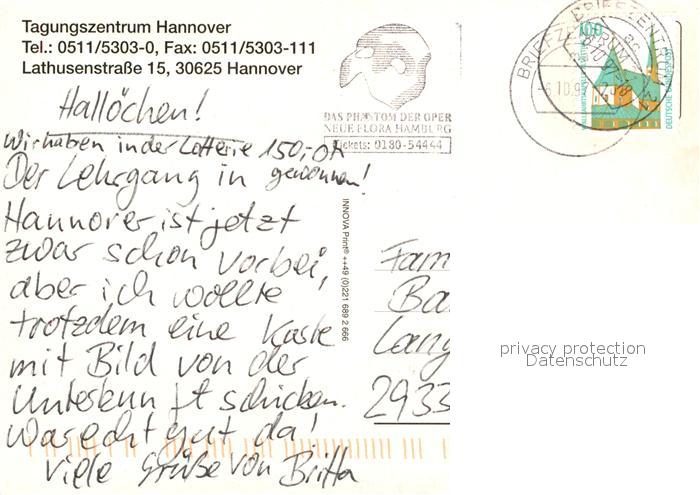 Tagungszentrum Hannover
Tel.: 0511/5303-0, Fax: 0511/5303-111
Lathusenstraße 15, 30625 Hannover
Hallöchen!
Wir haben in der Lotterie 150,- DM
gewonnen!
Der Lehrgang in
Hannover ist jetzt
zwar schon vorbei,
aber ich wollte
trotzdem eine Karte
mit Bild von der
Unterkunft schicken.
War echt gut da!
Viele Grüße von Britta
DAS PHANTOM DER OPER
NEUE FLORA HAMBURG
Tickets: 0180-54444
BRIEFZENTRUM
BRIEFZENTRUM
100
DEUTSCHE BUNDESPOST
INNOVA Print® ++49 (0)221 689 2 666
Fam
Ba
Lang
2933
privacy protection
Datenschutz